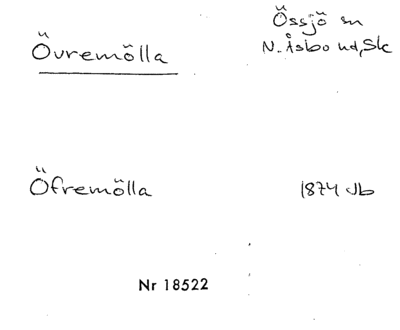 Össjö sn
Övremölla
N. Åsbo hd, Sk
Öfremölla 1874 Jb
Nr 18522